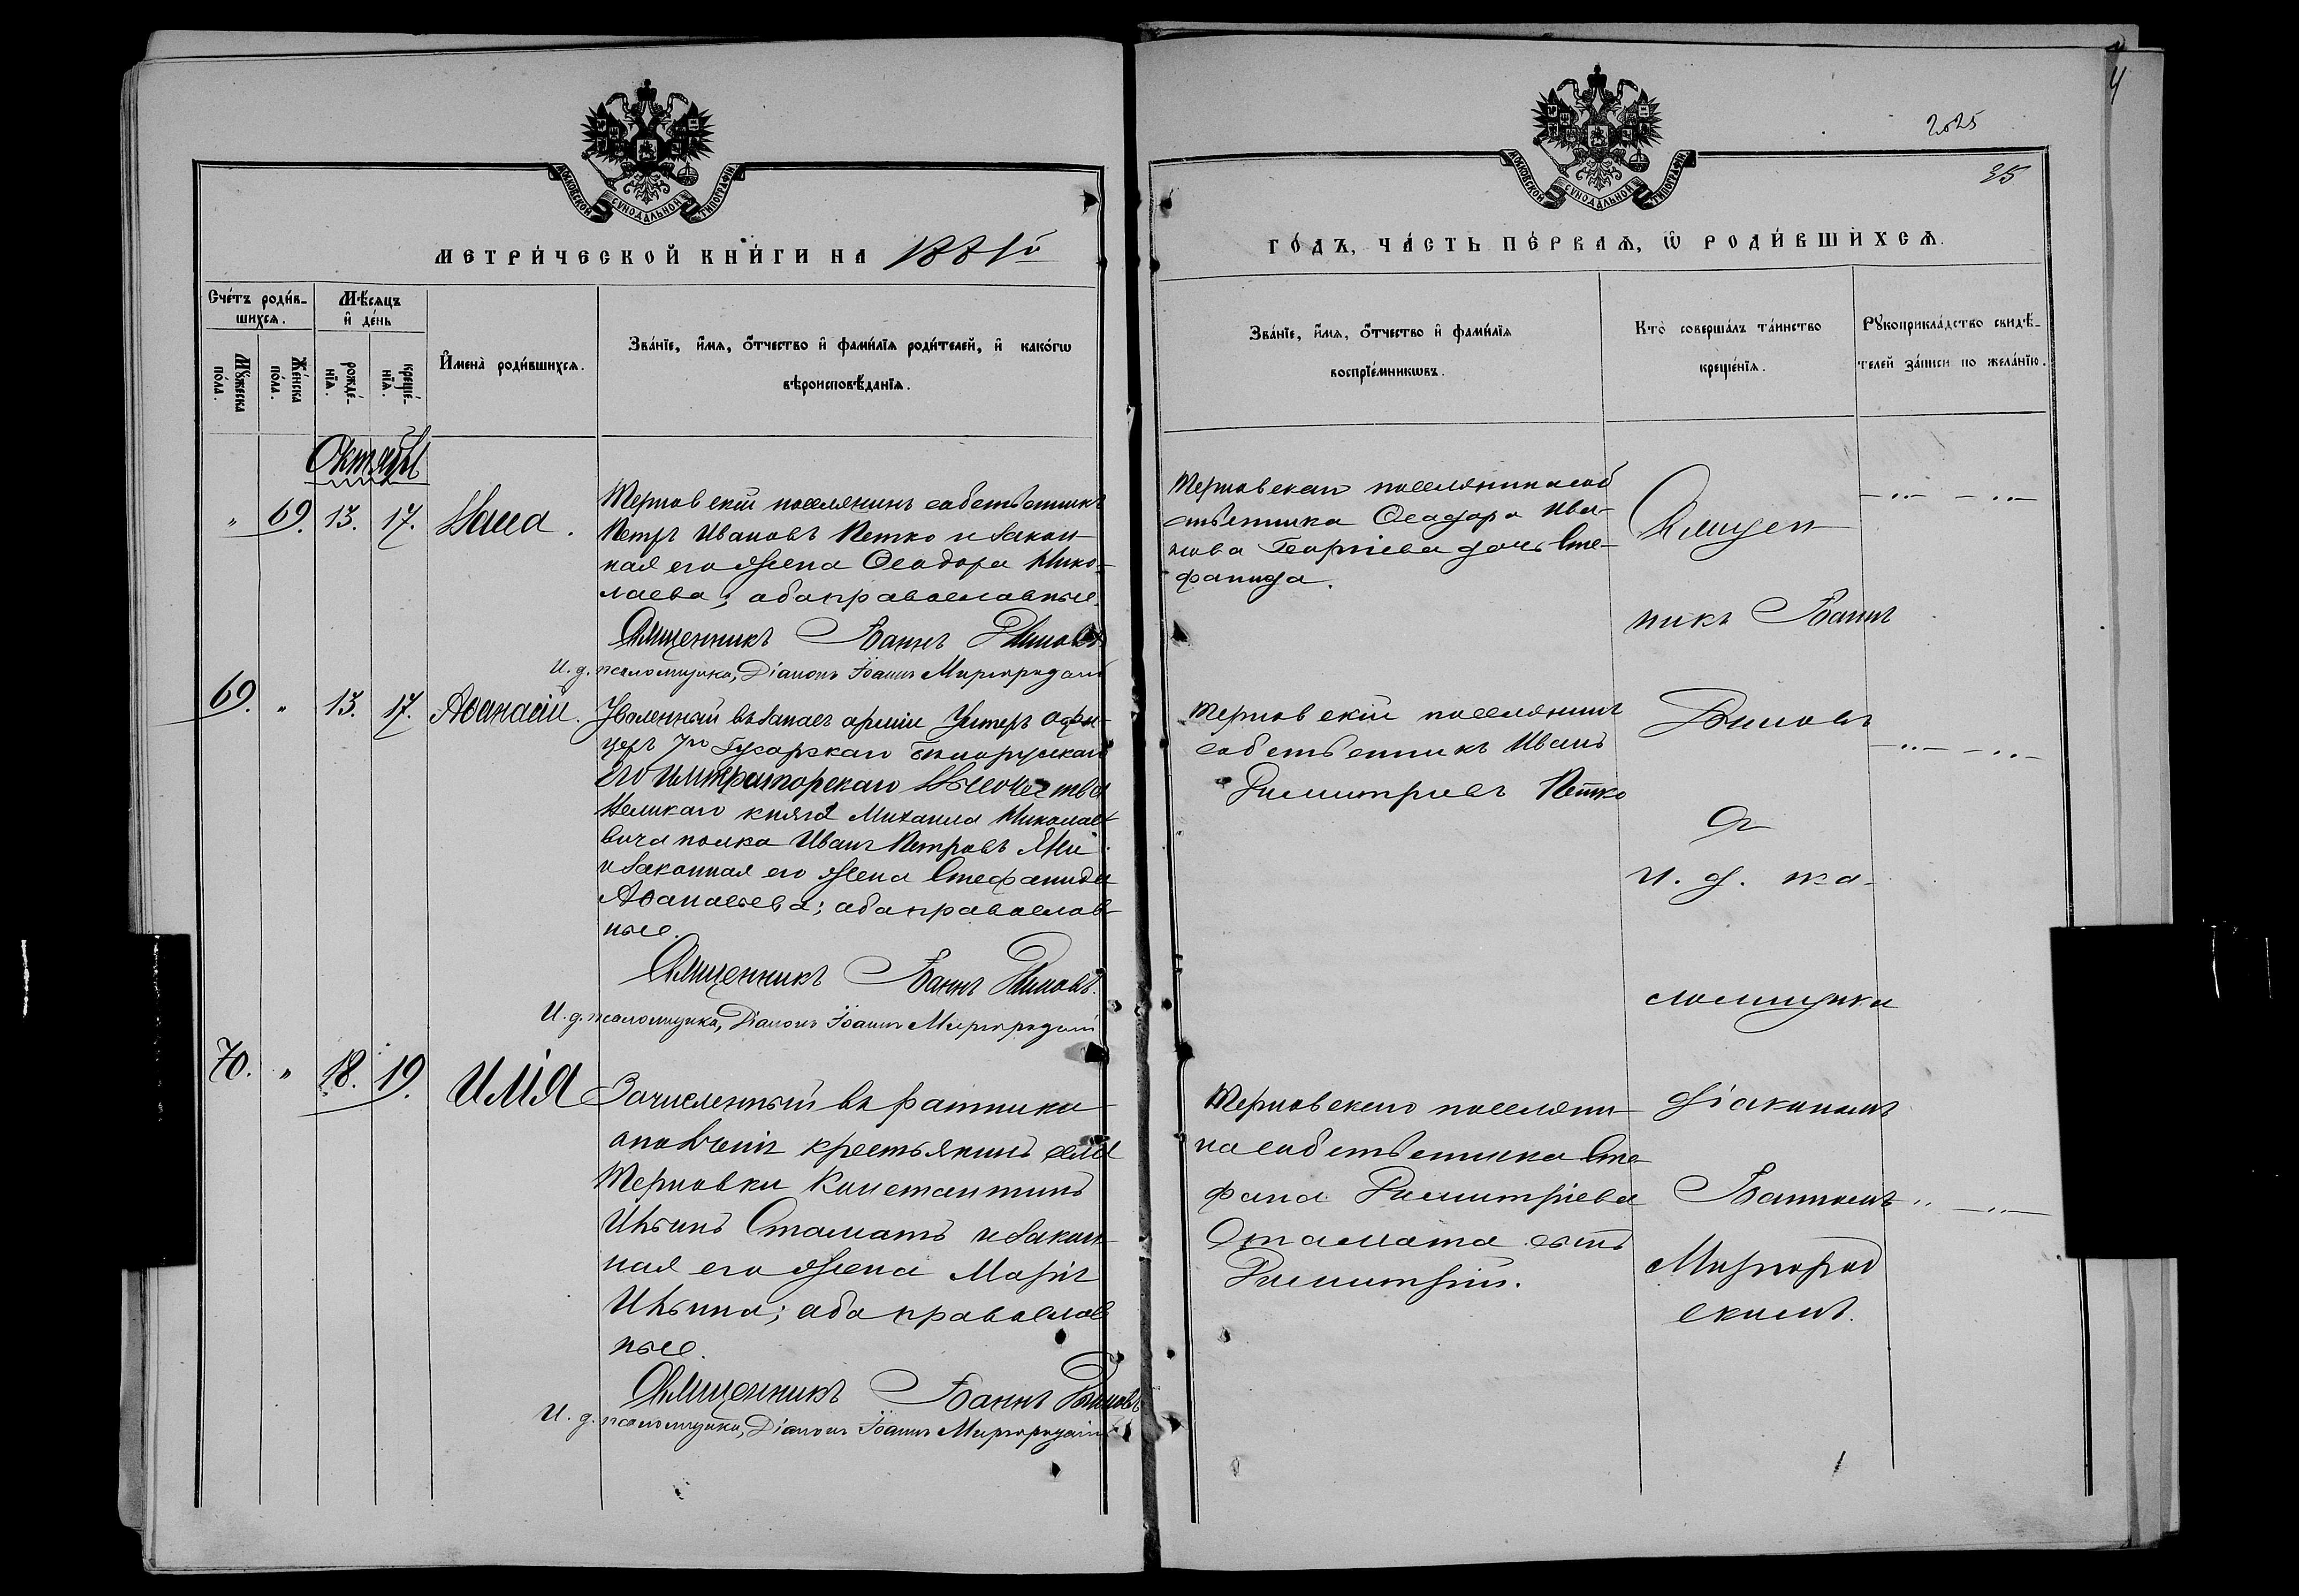 МОСКОВСКОЙ СѴНОДАЛЬНОЙ ТИПОГРАФІИ
МЕТРИ́ЧЕСКОЙ КНИ́ГИ НА 1881й
Сче́тъ роди́в-
шихсѧ.
Мѣ́сяцъ
и҆ де́нь
Мꙋ́жеска
по́ла.
Же́нска
по́ла.
рожде́-
нїѧ.
креще́-
нїѧ.
И҆мена̀ роди́вшихсѧ.
Зва́нїе, и҆́мѧ, ѻ҆́тчество и҆ фами́лїѧ роди́телей, и҆ како́гѡ
вѣроисповѣ́данїѧ.
Октябрь
" 69. 13. 17.
Терновскій поселянинъ собственникъ
Петръ Ивановъ Петко и закон-
ная его жена Ѳеодора Нико-
лаева; оба православные.
Священникъ Іоаннъ Димовъ
И. д. псаломщика, Діаконъ Іоаннъ Миргородскій
69. " 13. 17. Аѳанасій.
Уволенный въ запасъ арміи Унтеръ офи-
церъ 7го Гусарскаго Бѣлорусскаго
Его Императорскаго Высочества
Великаго князя Михаила Николае-
вича полка Иванъ Петровъ
и законная его жена Стефанида
Аѳанасьева; оба православ-
ные.
Священникъ Іоаннъ Димовъ.
И. д. псаломщика, Діаконъ Іоаннъ Миргородскій
70. " 18. 19. Илія
Зачисленный въ ратники
ополченія крестьянинъ села
Терновки Константинъ
Ильинъ Стаматъ и закон-
ная его жена Марія
Ильина; оба православ
ные.
Священникъ Іоаннъ Димовъ
И. д. псаломщика, Діаконъ Іоаннъ Миргородскій
4
2025
25
МОСКОВСКОЙ СѴНОДАЛЬНОЙ ТИПОГРАФІИ
ГО́ДЪ, ЧА́СТЬ ПЕ́РВАѦ, Ѡ҆ РОДИ́ВШИХСѦ.
Зва́нїе, и҆́мѧ, ѻ҆́тчество и҆ фами́лїѧ
воспрїе́мникѡвъ.
Кто̀ соверша́лъ та́инство
креще́нїѧ.
Рꙋкоприкла́дство свидѣ́-
телей за́писи по жела́нїю.
Терновскаго поселянина соб
ственника Ѳеодора Ива-
нова Георгіева дочь Сте-
фанида.
Терновскій поселянинъ
собственникъ Иванъ
Димитріевъ Петко
Терновскаго поселяни-
на собственника Сте-
фана Димитріева
Стамата сынъ
Димитрій.
Священ
никъ Іоаннъ
Димовъ
съ
и. д. пса-
ломщика
діакономъ
Іоанномъ
Миргород
скимъ.